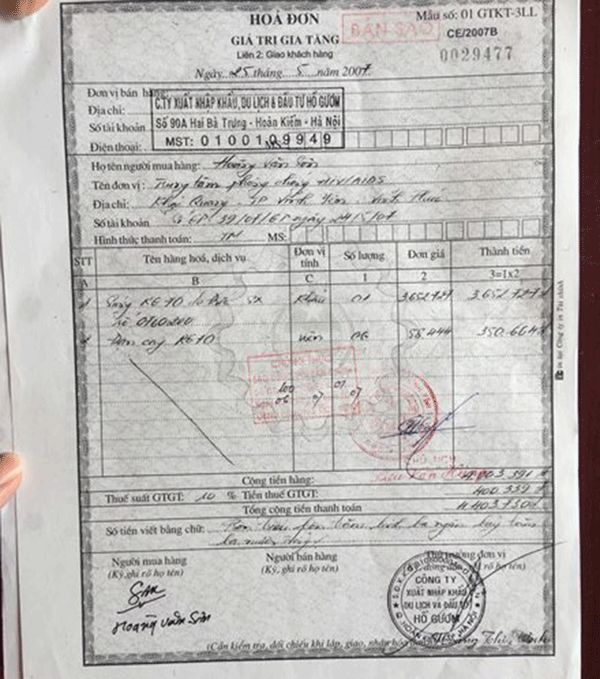 HOÁ ĐƠN
Mẫu số: 01 GTKT-3LL
GIÁ TRỊ GIA TĂNG
BẢN SAO
CE/2007B
Liên 2: Giao khách hàng
0029477
Ngày 25 tháng 5 năm 2007
Đơn vị bán hàng:
C.TY XUẤT NHẬP KHẨU, DU LỊCH & ĐẦU TƯ HỒ GƯƠM
Địa chỉ:
Số 90A Hai Bà Trưng - Hoàn Kiếm - Hà Nội
Số tài khoản
Điện thoại:
MST: 0100109949
Họ tên người mua hàng: Hoàng Văn Sơn
Tên đơn vị: Trung tâm phòng chống HIV/AIDS
Địa chỉ: Khai Quang - TP Vĩnh Yên - Vĩnh Phúc
Số tài khoản Số GP 39/07/GP ngày 24/5/07
Hình thức thanh toán: TM MS:
STT Tên hàng hoá, dịch vụ Đơn vị tính Số lượng Đơn giá Thành tiền
A B C 1 2 3=1x2
1 Súng KE 10 do Đức SX Khẩu 01 3.652.727 3.652.727đ
số 0760200
2 Đạn cay KE 10 viên 06 58.444 350.664đ
Cộng tiền hàng: 4.003.391đ
Thuế suất GTGT: 10 % Tiền thuế GTGT: 400.339đ
Tổng cộng tiền thanh toán 4.403.730đ
Số tiền viết bằng chữ: Bốn triệu bốn trăm linh ba ngàn bảy trăm
ba mươi đồng
Người mua hàng Người bán hàng Thủ trưởng đơn vị
(Ký, ghi rõ họ tên) (Ký, ghi rõ họ tên)
CÔNG TY
XUẤT NHẬP KHẨU
DU LỊCH VÀ ĐẦU TƯ
HỒ GƯƠM
Hoàng Văn Sơn
(Cần kiểm tra, đối chiếu khi lập, giao, nhận hoá